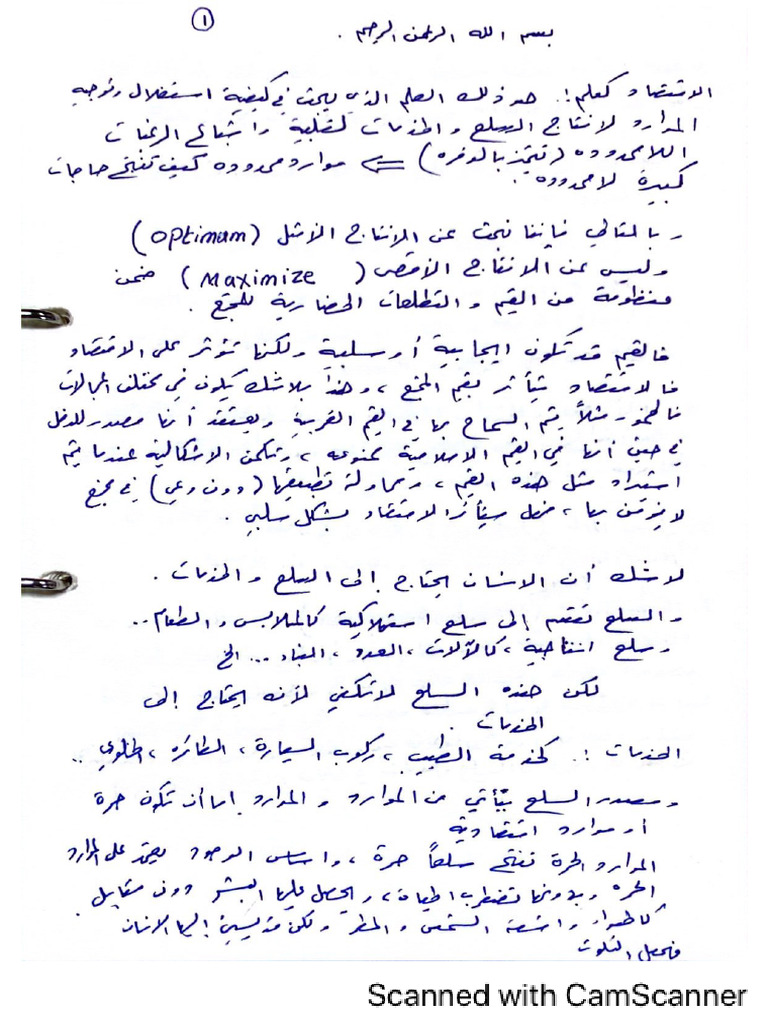 ١
بسم الله الرحمن الرحيم .
الاقتصاد كعلم :. هو ذلك العلم الذي يبحث في كيفية استغلال وتوجيه
الموارد لانتاج السلع والخدمات لتلبية واشباع الرغبات
اللامحدوده (تتميز بالوفره) ⇐ موارد محدوده كيف تنتج حاجات
كبيرة لا محدوده .
وبالتالي فإننا نبحث عن الانتاج الأمثل (optimum)
وليس عن الانتاج الأقصى (Maximize) ضمن
منظومة من القيم والتطلعات الحضارية للمجتمع .
فالقيم قد تكون ايجابية أو سلبية ولكنها تؤثر على الاقتصاد
فالاقتصاد يتأثر بقيم المجتمع ، وهذا بلا شك يكون في مختلف المجالات
فالخمور مثلاً يتم السماح بها في القيم الغربية ويعتقد أنها مصدر للدخل
في حين أنها في القيم الاسلامية ممنوعه ، وتكمن الاشكالية عندما يتم
استيراد مثل هذه القيم ، ومحاولة تطبيقها (دون وعي) في مجتمع
لا يؤمن بها ، سيتأثر الاقتصاد بشكل سلبي .
لا شك أن الانسان يحتاج إلى السلع والخدمات .
والسلع تنقسم إلى سلع استهلاكية كالملابس والطعام ..
وسلع انتاجية ، كالآلات ، العدد ، البناء ... الخ
لكن هذه السلع لا تكفي لأنه يحتاج إلى
الخدمات .
الخدمات :. كخدمة الطبيب ، ركوب السيارة ، الطائره ، الخلوي ..
ومصدر السلع يتأتي من الموارد والموارد اما أن تكون حرة
أو موارد اقتصادية
الموارد الحرة تنتج سلعاً حرة ، واساس الوجود يعتمد على الموارد
الحره وبدونها تضطرب الحياة ، ويحصل عليها البشر دون مقابل .
كالهواء واشعة الشمس والمطر ولكن قد يسيئ إليها الانسان
فيحصل التلوث
Scanned with CamScanner